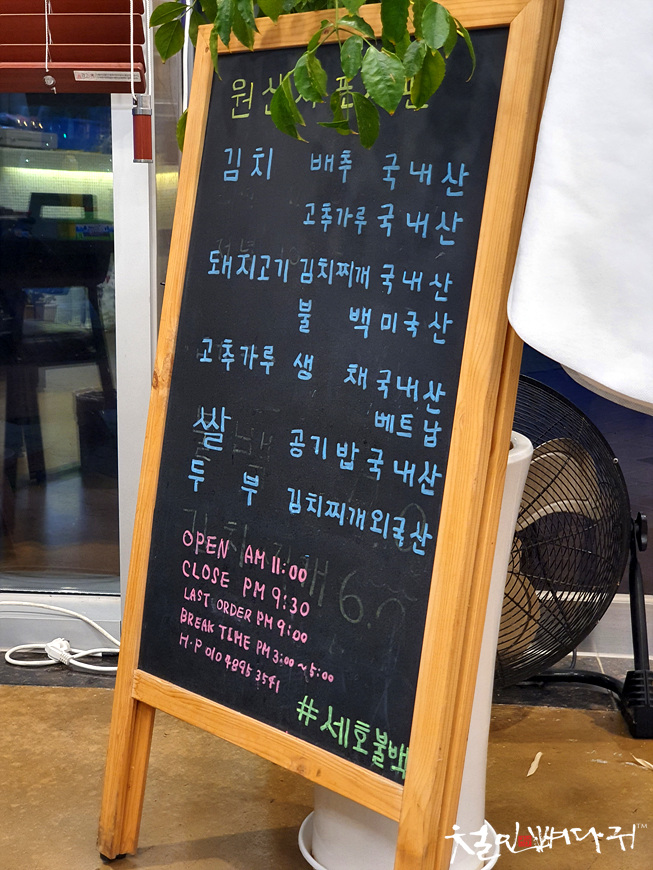 김치 배추 국내산
고추가루 국내산
돼지고기 김치찌개 국내산
불백 미국산
고추가루 생채 국내산
베트남
쌀 공기밥 국내산
두부 김치찌개 외국산
OPEN AM 11:00
CLOSE PM 9:30
LAST ORDER PM 9:00
BREAK TIME PM 3:00 ~ 5:00
H.P 010 4895 3541
#세호불백